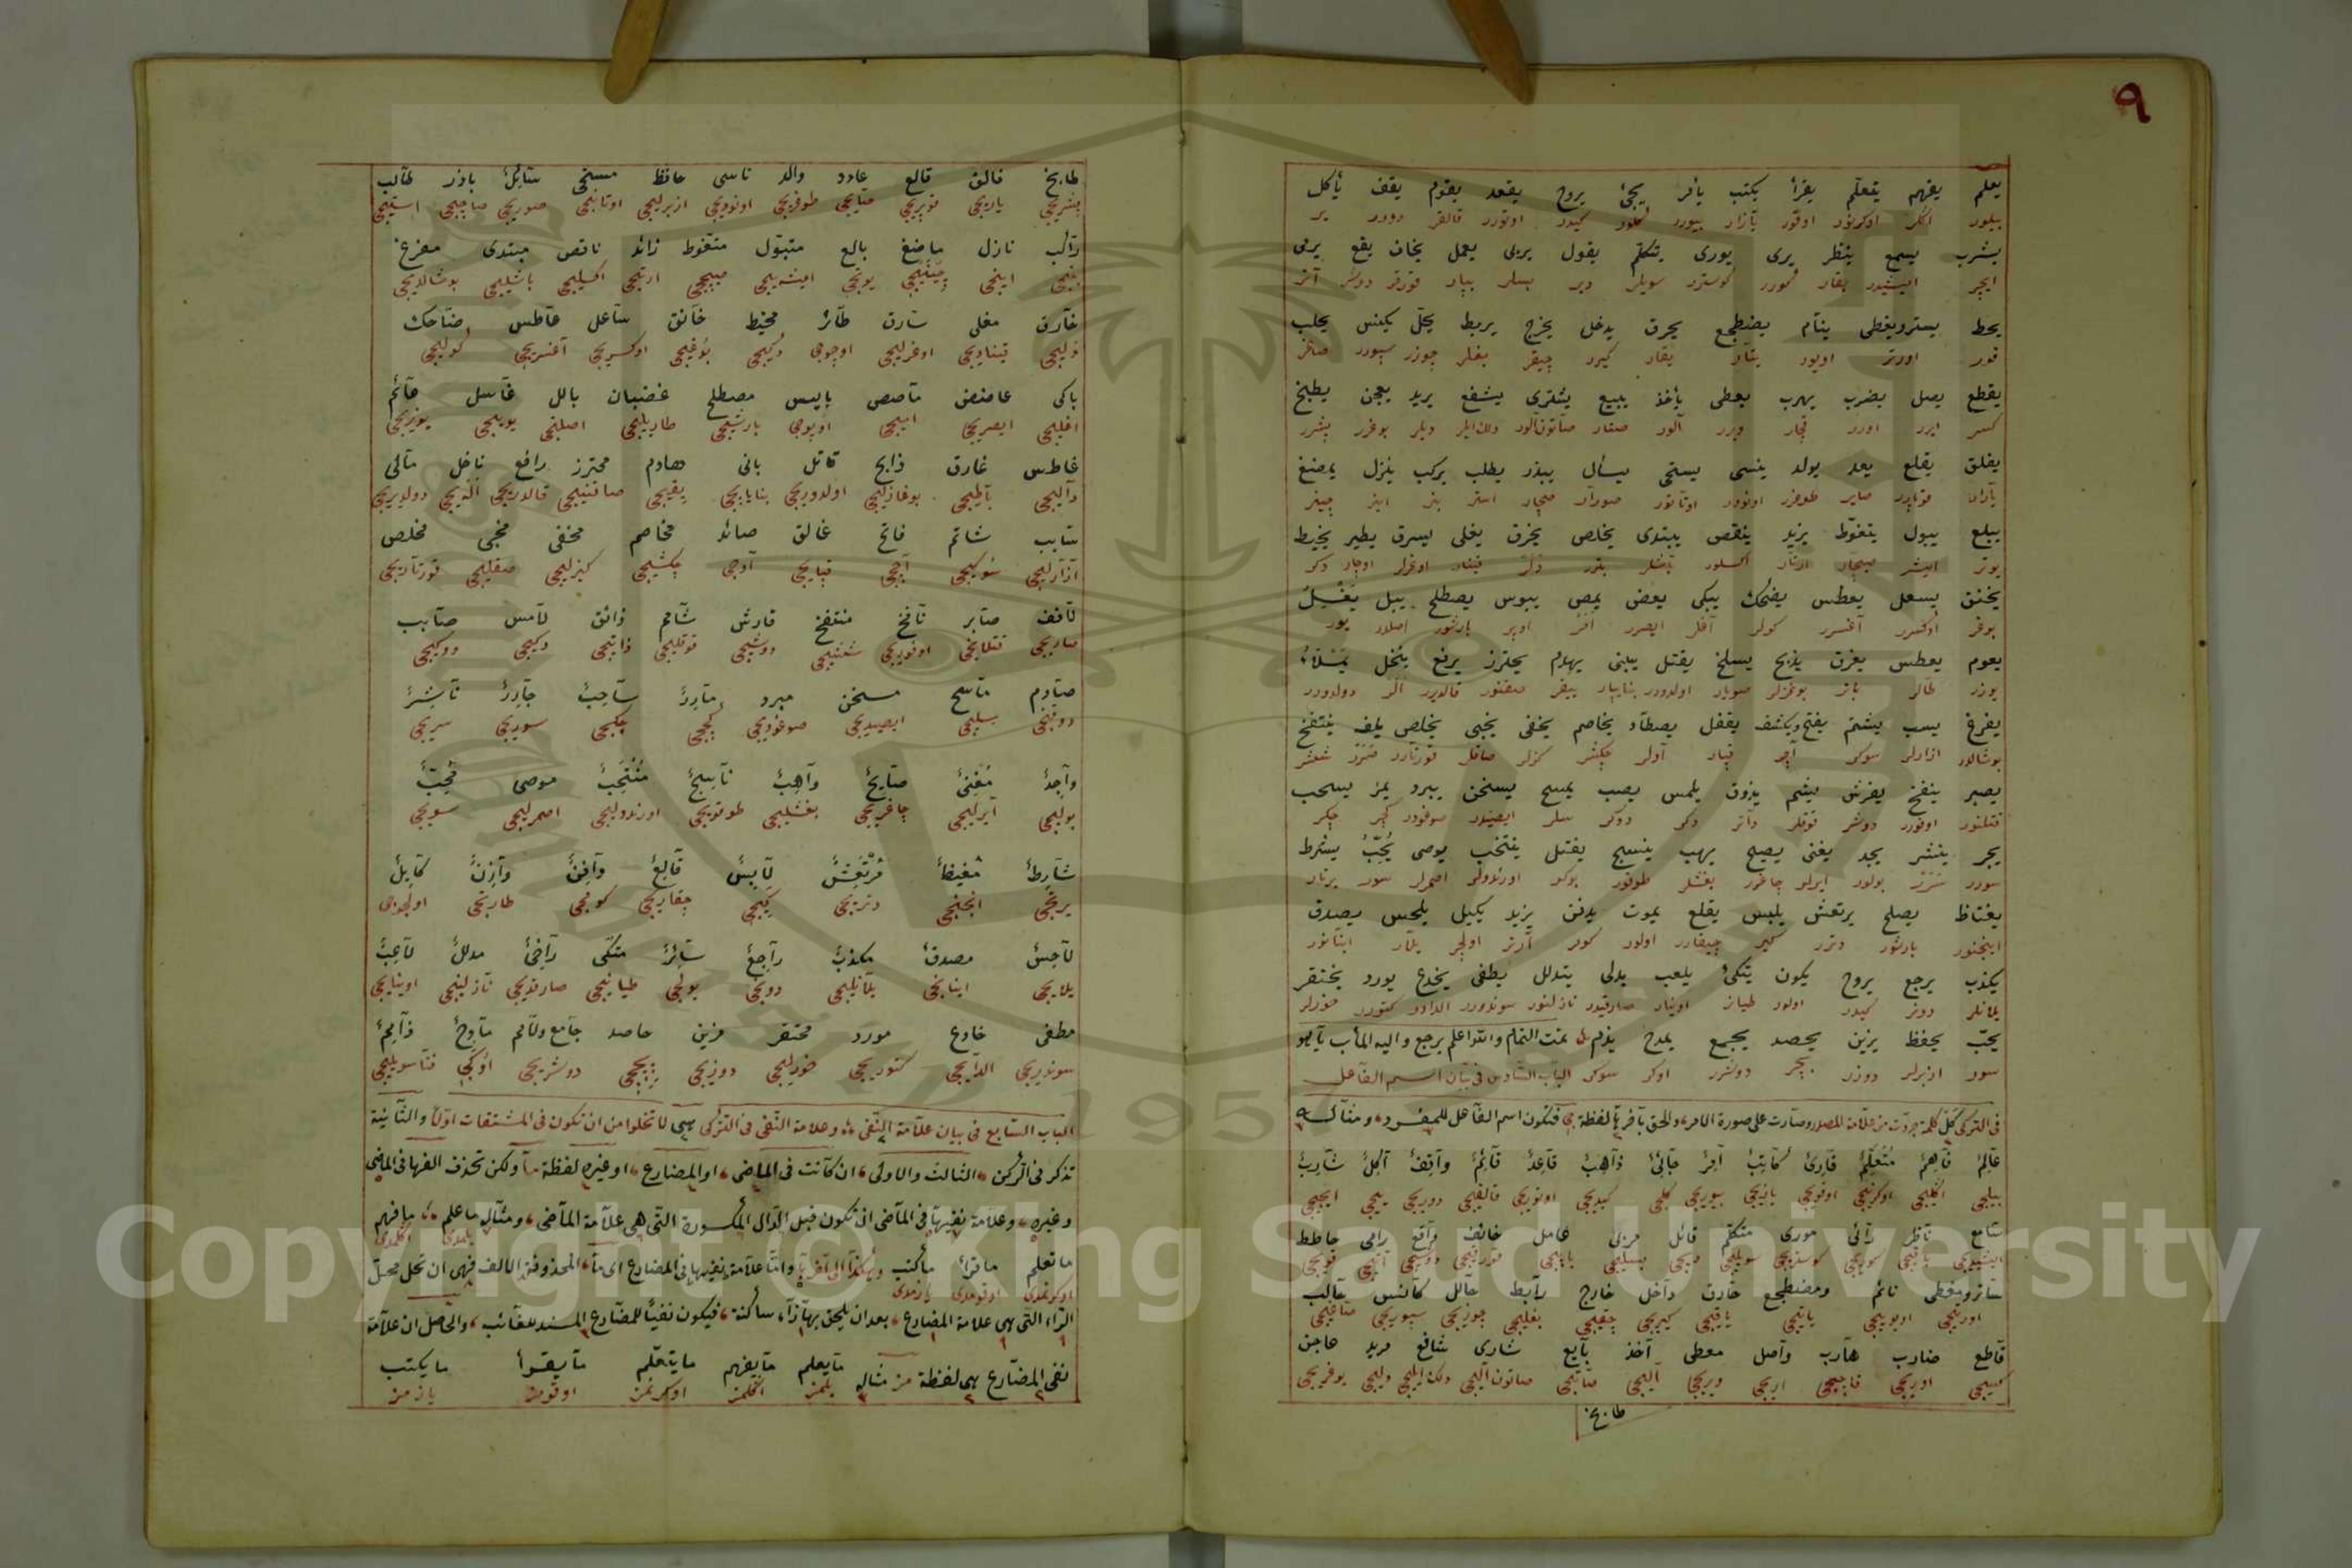 ٩
يعلم يفهم يتعلّم يقرأ يكتب يأمر يجئ يروح يقعد يقوم يقف يأكل
بيلور اكلر اوكرنور اوقور يازار بيورر كلور كيدر اوتورر قالقر دورر ير
يشرب يسمع ينظر يرى يورى يتكلّم يقول يربى يعمل يخاف يقع يرمى
ايچر ايشيدر بقار كورر كوسترر سويلر دير بسلر يپار قورقر دوشر آتر
يحط يستر ويغطى ينام يضطجع يحرق يدخل يخرج يربط يحلّ يكنس يحلب
قور اورتر اويور ياتار يقار كيرر چيقر بغلر چوزر سپورر صاغر
يقطع يصل يضرب يهرب يعطى يأخذ يبيع يشترى يشفع يريد يعجن يطبخ
كسر ايرر اورر قچار ويرر آلور صتار صاتون آلور ديلر يوغرر پشرر
يفلق يقلع يعد يولد ينسى يستحى يسأل يبذر يطلب يركب ينزل يمضغ
يارار قوپارر صاير طوغر اونودر اوتانور صورار صچار استر بنر اينر چينر
يبلع يبول يتغوّط يزيد ينقص يبتدى يخلص يخرق يغلى يسرق يطير يخيط
يوتر ايشر صيچار ارتار اكسلور باشلر بتر دلر قينار اوغرلر اوچار دكر
يخنق يسعل يعطس يضحك يبكى يعض يمص يبوس يصطلح يبل يغسل
بوغر اوكسرر آغسرر كولر آغلر ايصرر امر اوپر بارشور اصلار يور
يعوم يعطس يغرق يذبح يسلخ يقتل يبنى يهدم يحترز يرفع ينخل يمتلاء
يوزر طالر باتر بوغزلر صويار اولدورر بنا يپار ييقر صقنور قالديرر الر دولدورر
يفرغ يسب يشتم يفتح ويكشف يقفل يصطاد يخاصم يخفى يخبى يخلص يلف ينتفخ
بوشالدر ازارلر سوكر آچر قپار آولر چكشر كزلر صاقلر قورتارر صرر شيشر
يصبر ينفخ يفرش يشم يذوق يلمس يصب يمسح يسخن يبرد يمر يسحب
قتلنور اوفورر دوشر قوقلر داتر دكر دوكر سلر ايصيدر صوغودر كچر چكر
يجر ينشر يجد يغنى يصيح يهب ينسج يفتل ينتخب يوصى يُحِبّ يشرط
سورر سرر بولور ايرلر چاغرر بغشلر طوقور بوكر اورندولر اصمرلر سور يرتار
يغتاظ يصلح يرتعش يلبس يقلع يموت يدفن يزيد يكيل يلحس يصدق
اينجنور بارشور دترر كير چيقارر اولور كومر آرتر اولچر يلار اينانور
يكذب يرجع يروح يكون يتكئ يلعب يدلى يتدلل يطفى يخدع يورد يختقر
يلانلر دونر كيدر اولور طيانر اوينار صارقيدر نازلنور سوندورر الدادر كتورر خورلر
يحبّ يحفظ يزين يحصد يجمع يمدح يذم تمت التمام والله اعلم يرجع واليه المأب
سور ازبرلر دوزر بچر دوشرر اوكر سوكر الباب السّادس فى بيان اسم الفاعل
فى التركى كلّ كلمة جردت من علامة المصدر وصارت على صورة الامر والحق بآخرها لفظة جى فتكون اسم الفاعل للمفرد ومثاله
عالم فاهم متعلّم قارئ كاتب آمر جائ ذاهب قاعد قائم واقف آكل شارب
بيليجى اكليجى اوكرنيجى اوقويجى يازيجى بيوريجى كليجى كيديجى اوتوريجى قالقيجى دوريجى ييجى ايچيجى
سامع ناظر رائى مورى متكلّم قائل مربى عامل خائف واقع رامى حاطط
ايشيديجى باقيجى كوريجى كوستريجى سويليجى ديجى بسليجى ياپيجى قورقيجى دوشيجى آتيجى قويجى
ساتر ومغطى نائم ومضطجع حارق داخل خارج رابط حالل كانس حالب
اورتيجى اويويجى ياتيجى ياقيجى كيريجى چقيجى بغليجى چوزيجى سپوريجى صاغيجى
قاطع ضارب هارب واصل معطى آخذ بايع شارى شافع مريد عاجن
كسيجى اوريجى قاچيجى اريجى ويريجى آليجى صاتيجى صاتون اليجى ديليجى يوغريجى
طابخ
طابخ فالق قالع عادد والد ناسى حافظ مستحى سائل باذر طالب
پشريجى ياريجى قوپريجى صايجى طوغريجى اونوديجى ازبرليجى اوتانيجى صوريجى صاچيجى استيجى
راكب نازل ماضغ بالع متبوّل متغوط زائد ناقص مبتدى مفرغ
بنيجى اينيجى چينيجى يوتيجى ايشيجى صيچيجى ارتيجى اكسيليجى باشليجى بوشالديجى
خارق مغلى سارق طائر مخيط خانق ساعل عاطس ضاحك
دليجى قيناديجى اوغرليجى اوچوجى دكيجى بوغيجى اوكسريجى آغسريجى كوليجى
باكى عاضض ماصص بايس مصطلح غضبان بالل غاسل عائم
اغليجى ايصريجى اميجى اوپوجى بارشيجى طاريليجى اصليجى يوييجى يوزيجى
غاطس غارق ذابح قاتل بانى هادم محترز رافع ناخل مالى
داليجى باطيجى بوغازليجى اولدوريجى بنا ياپيجى يقيجى صاقنيجى قالديريجى اليجى دولديريجى
سابب شاتم فاتح غالق صائد مخاصم مخفى مخبى مخلص
آزارليجى سوكيجى آچيجى قپايجى آوجى چكشيجى كيزليجى صقليجى قورتاريجى
لافف صابر نافخ منتفخ فارش شامم ذائق لامس صابب
صاريجى قتلانيجى اوفوريجى ششيجى دوشيجى قوقليجى داتيجى دكيجى دوكيجى
صادم ماسح مسخن مبرد مارر ساحب جارر ناشر
دوقنيجى سيليجى ايصيديجى صوغوديجى كچيجى چكيجى سوريجى سريجى
واجد مغنى صايح واهب ناسج منتخب موصى محبّ
بوليجى آيرليجى چاغريجى بغشليجى طوقويجى اورندوليجى اصمرليجى سويجى
شارط مغيظ مرتعش لابس قالع دافن وازن كايل
يرتيجى انجنيجى دتريجى كييجى چقاريجى كوميجى طارتيجى اولچوجى
لاحس مصدق مكذب راجع سائر متكى راخى مدلل لاعب
يلايجى اينانيجى يلانليجى دونيجى يوليجى طيانيجى صارقديجى نازلنيجى اوينايجى
مطفى خادع مورد محتقر مزين حاصد جامع ولامم مادح ذامم
سوندريجى الدايجى كتوريجى خورليجى دوزيجى بيچيجى دوشريجى اوكيجى فنا سويليجى
الباب السّابع فى بيان علامة النّفى وعلامة النّفى فى التركى هى لا تخلوا من ان تكون فى المشتقات اوّلا والثّانية
تذكر فى اثر كن الثالث والاولى ان كانت فى الماضى او المضارع او غيره لفظة ما ولكن تحذف الفها فى الماضى
وغيره وعلامة نفيها فى الماضى ان تكون قبل الدال المكسورة التى هى علامة الماضى ومثاله ما علم ما فهم
بلمدى اكلمدى
ما تعلم ما قرأ ما كتب وهكذا الى آخرها وامّا علامة نفيها فى المضارع اى ما المحذوفة الالف فهى ان تحل محلّ
اوكرنمدى اوقومدى يازمدى
الرّاء التى هى علامة المضارع بعد ان يلحق بها زاء ساكنة فيكون نفيًا للمضارع المسند للغائب والحاصل ان علامة
نفى المضارع هى لفظة مز مثاله ما يعلم ما يفهم ما يتعلّم ما يقرأ ما يكتب
بلمز اكلمز اوكرنمز اوقومز يازمز
Copyright © King Saud University
1957